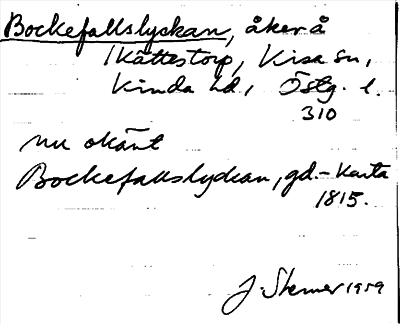 Bockefallslyckan, åker å
Kättestorp, Kisa sn,
Kinda hd, Östg. l.
310
nu okänt
Bockefallslyckan, gd.-karta
1815.
J. Stenner 1959